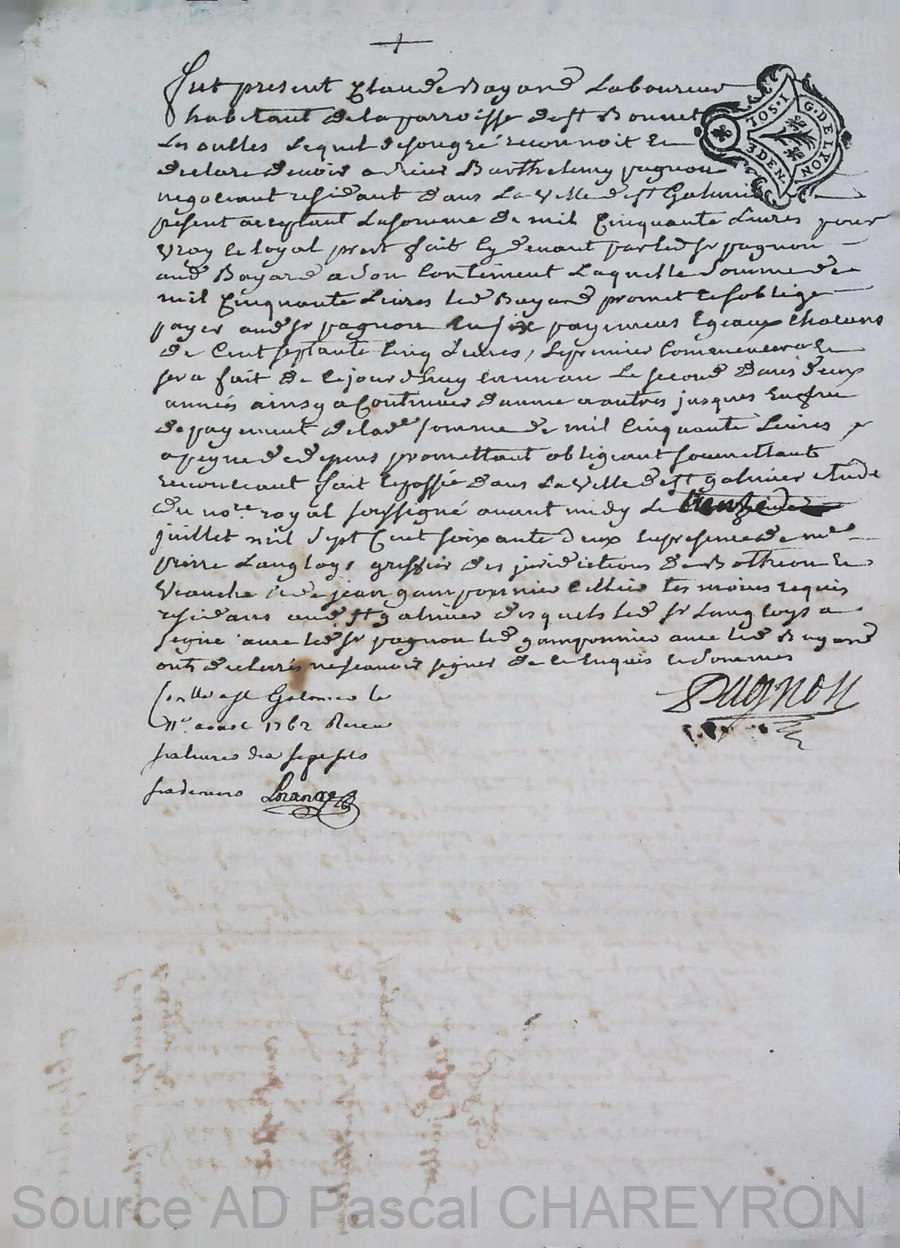 fut present Claude Bayard Laboureur
habitant de la parroisse de st Bonnet
Les oulles Lequel de son gré reconnoit Et
declare devoir a sieur Barthelemy pagnon
negociant residant dans La ville de st Galmier
présent acceptant La somme de mil Cinquante Livres pour
vray et loyal prest fait Cy devant par led sr pagnon
aud Bayard a son Contentement Laquelle somme de
mil Cinquante Livres led Bayard promet et s'oblige
payer aud sr pagnon En six payements Egeaux chacuns
de Cent septante Cinq Livres, Le premier Commencera Et
sera fait de Ce jour d'huy en un an Le second dans deux
années ainsy a Continuer d'anné a autres jusques En fin
de payement de lade somme de mil Cinquante Livres
a peyne de depens promettant obligeant soumettant
renonceant fait et passé dans La ville de st galmier etude
du nore royal soussigné avant midy Le
juillet mil sept Cent soixante deux En presence de me
pierre Langloys greffier des juridictions de Botheon Et
veauche et de jean gamponnier Cellier temoins requis
residans aud st galmier desquels led sr Langloys a
signé avec led sr pagnon led gamponnier avec led Bayard
ont declarés ne scavoir signer de ce Enquis et sommes
Pagnon
st Galmier le
aoust 1762 Receu
livres dix sept sols
TOS. I
G. DE LYON
DEN.
Source AD Pascal CHAREYRON